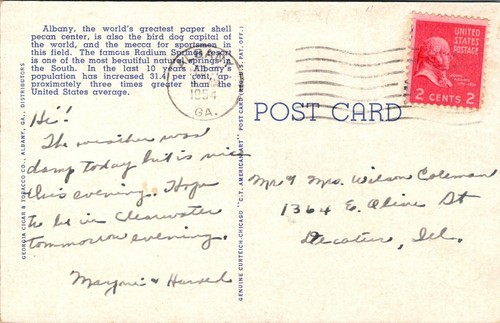 Albany, the world's greatest paper shell
pecan center, is also the bird dog capital of
the world, and the mecca for sportsmen in
this field. The famous Radium Springs resort
is one of the most beautiful natural springs in
the South. In the last 10 years Albany's
population has increased 31.4 per cent, ap-
proximately three times greater than the
United States average.
Hi!
The weather was
damp today but is nice
this evening. Hope
to be in Clearwater
tommorrow evening.
Mayme & Harold
GEORGIA CIGAR & TOBACCO CO., ALBANY, GA., DISTRIBUTORS
GENUINE CURTEICH-CHICAGO "C.T. AMERICAN ART" POST CARD (REG. U.S. PAT. OFF.)
1954
GA.
POST CARD
UNITED
STATES
POSTAGE
JOHN
ADAMS
2 CENTS 2
Mr & Mrs. Wilson Coleman
1364 E. Olive St
Decatur, Ill.